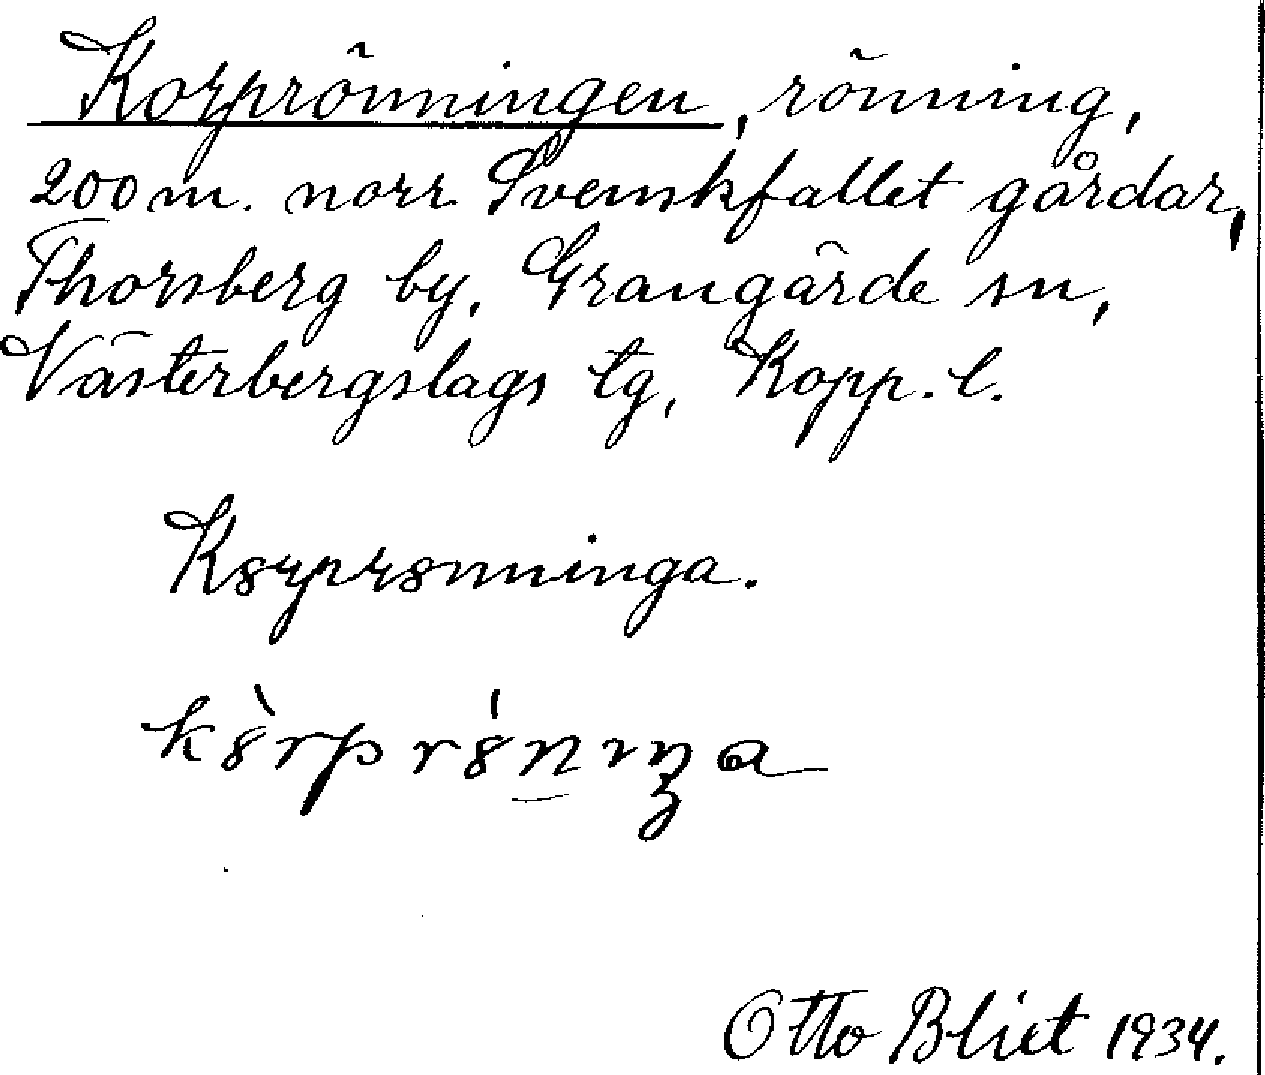 Korprönningen, rönning,
200 m. norr Svenskfallet gårdar,
Thorsberg by, Grangärde sn,
Västerbergslags tg, Kopp. l.
K8rpr8nninga.
k8̀rpr8́n̲ıŋa
Otto Bliet 1934.